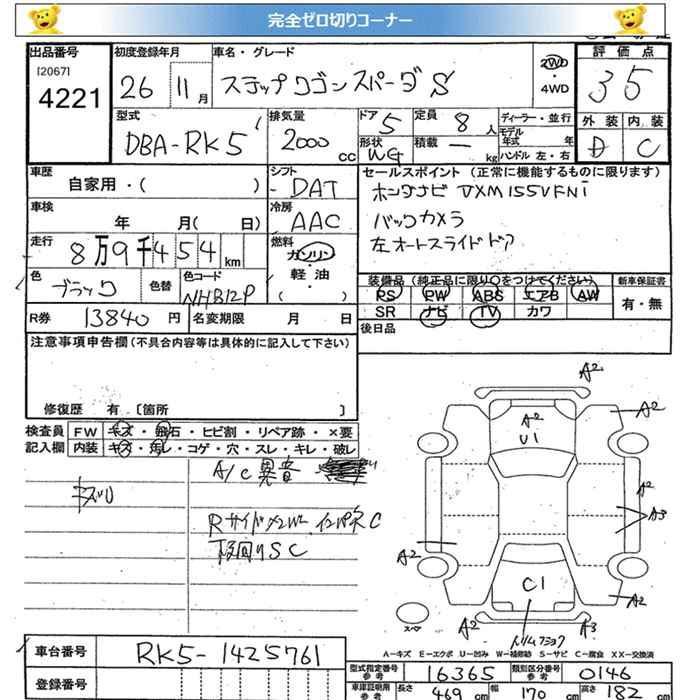 完全ゼロ切りコーナー
出品番号
[2067]
4221
初度登録年月
26 11月
車名・グレード
ステップワゴンスパーダ S
2WD
・
4WD
評価点
3 5
型式
DBA-RK5
排気量
2000 cc
ドア 5
形状 WG
定員 8 人
積載 - kg
ディーラー・並行
モデル年式 年
ハンドル 左・右
外装 内装
D C
車歴
自家用・( )
シフト
DAT
セールスポイント (正常に機能するものに限ります)
ホンダナビ VXM155VFNi
バックカメラ
左オートスライドドア
車検
年 月( 日)
冷房
AAC
走行
8万9千454km
燃料
ガソリン
軽・油
( )
色
ブラック
色替
色コード
NHB12P
装備品 (純正品に限り○をつけてください)
PS PW ABS エアB AW
SR ナビ TV カワ
新車保証書
有・無
R券 13840円
名変期限 月 日
後日品
注意事項申告欄(不具合内容等は具体的に記入して下さい)
修復歴 有 〔箇所 〕
検査員 FW キズ・飛石・ヒビ割・リペア跡・×要
記入欄 内装 キズ・汚レ・コゲ・穴・スレ・キレ・破レ
A/C異音
キズU
RサイドメンW. インパネC
下回りSC
A2
A2
A2
U1
A2
A3
A2
C1
A2
A2
A3
トリムフック
スペア
A-キズ E-エクボ U-凹み W-補修跡 S-サビ C-腐食 XX-交換済
車台番号 RK5-1425761
登録番号
型式指定番号 参考 16365
類別区分番号 参考 0146
車庫証明用 参考 長さ 469cm 幅 170cm 高さ 182cm